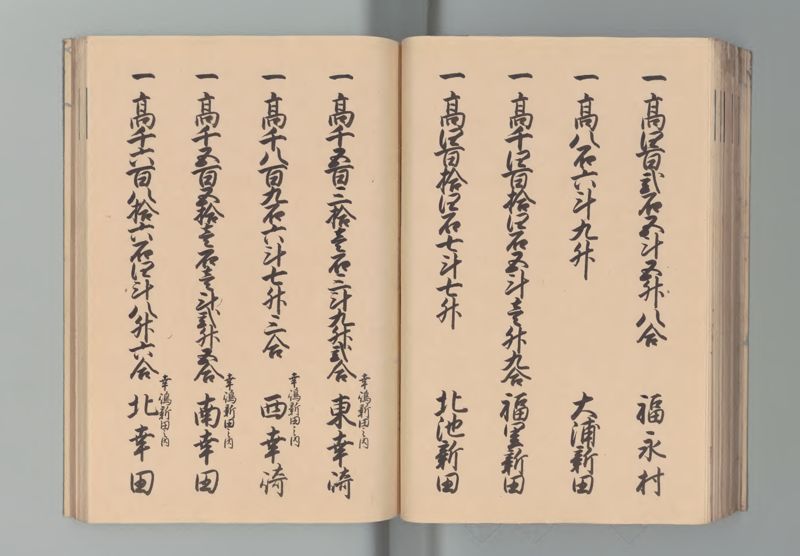 一 高四百弐石五斗五升八合 福永村
一 高八石六斗九升 大浦新田
一 高千四百拾四石五斗壱升九合 福里新田
一 高四百拾四石七斗七升 北池新田
一 高千五百三拾壱石三斗九升弐合 幸嶋新田之内 東幸崎
一 高千八百九石六斗七升三合 幸嶋新田之内 西幸崎
一 高千五百五拾壱石壱斗弐升五合 幸嶋新田之内 南幸田
一 高千六百八拾六石四斗八升六合 幸嶋新田之内 北幸田